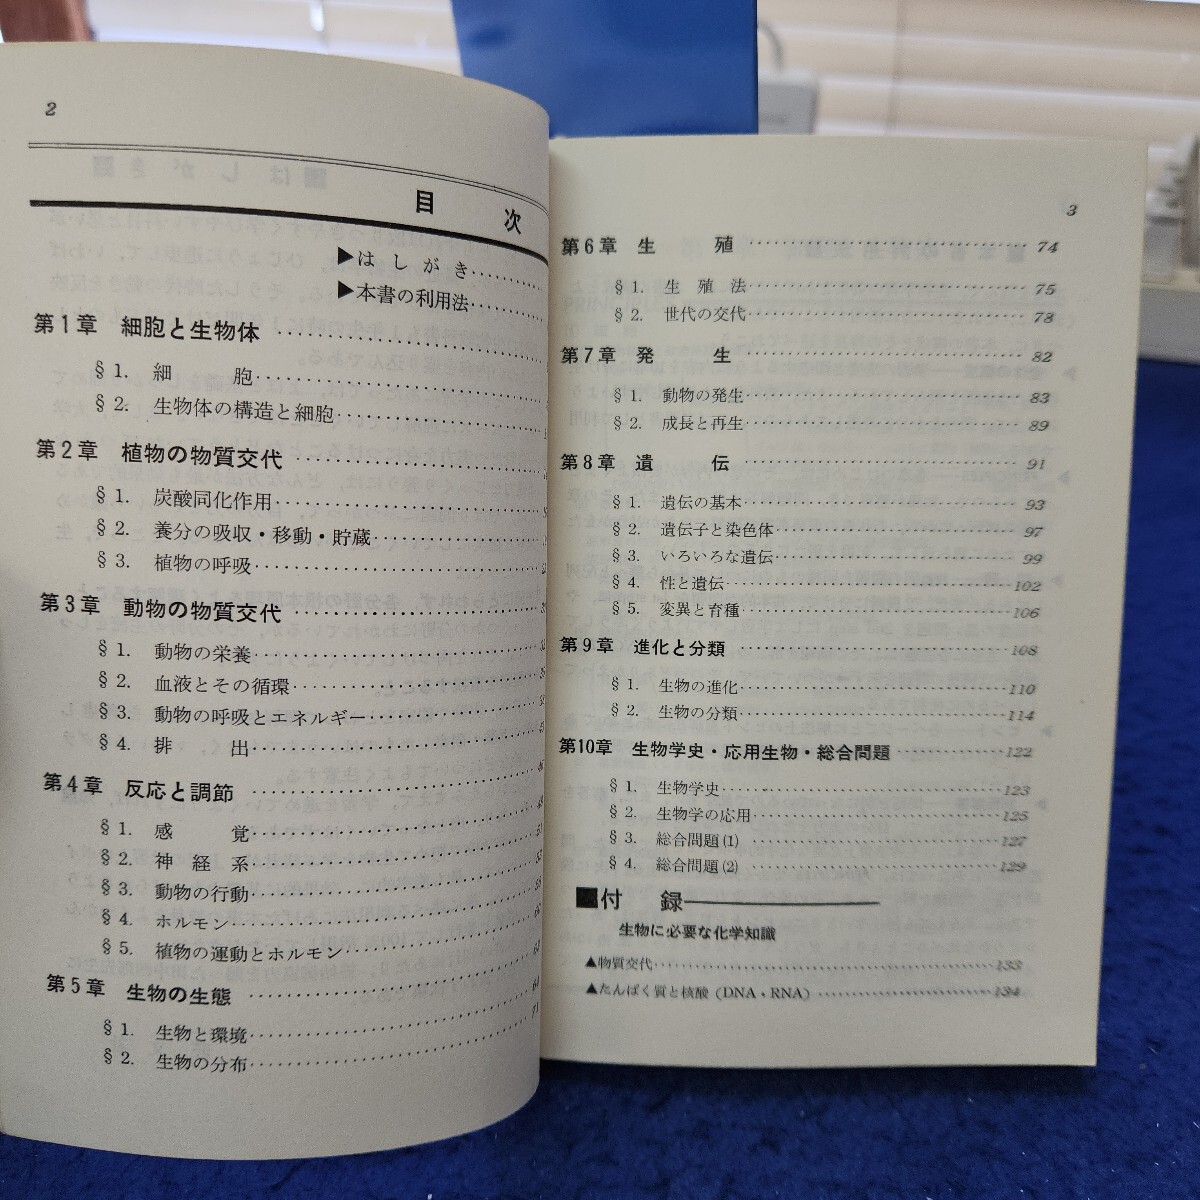 2
目次
▶はしがき
▶本書の利用法
第1章 細胞と生物体
§1. 細胞
§2. 生物体の構造と細胞
第2章 植物の物質交代
§1. 炭酸同化作用
§2. 養分の吸収・移動・貯蔵
§3. 植物の呼吸
第3章 動物の物質交代
§1. 動物の栄養
§2. 血液とその循環
§3. 動物の呼吸とエネルギー
§4. 排出
第4章 反応と調節
§1. 感覚
§2. 神経系
§3. 動物の行動
§4. ホルモン
§5. 植物の運動とホルモン
第5章 生物の生態
§1. 生物と環境
§2. 生物の分布
3
第6章 生殖 74
§1. 生殖法 75
§2. 世代の交代 78
第7章 発生 82
§1. 動物の発生 83
§2. 成長と再生 89
第8章 遺伝 91
§1. 遺伝の基本 93
§2. 遺伝子と染色体 97
§3. いろいろな遺伝 99
§4. 性と遺伝 102
§5. 変異と育種 106
第9章 進化と分類 108
§1. 生物の進化 110
§2. 生物の分類 114
第10章 生物学史・応用生物・総合問題 122
§1. 生物学史 123
§2. 生物学の応用 125
§3. 総合問題(1) 127
§4. 総合問題(2) 129
■付録
生物に必要な化学知識
▲物質交代 133
▲たんぱく質と核酸(DNA・RNA) 134